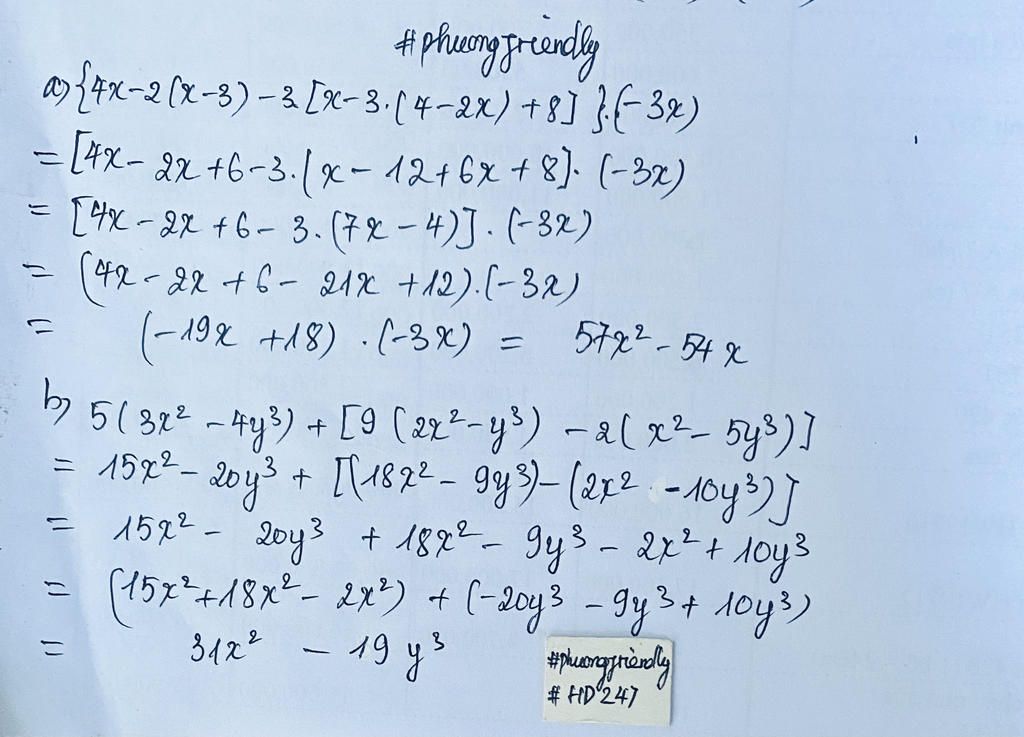 #phuongfriendly
a) {4x-2(x-3)-3[x-3.(4-2x)+8]}.(-3x)
= [4x-2x+6-3.(x-12+6x+8]. (-3x)
= [4x-2x+6-3.(7x-4)].(-3x)
= (4x-2x+6-21x+12).(-3x)
= (-19x+18).(-3x) = 57x²-54x
b) 5(3x²-4y³)+[9(2x²-y³)-2(x²-5y³)]
= 15x²-20y³+[(18x²-9y³)-(2x²-10y³)]
= 15x²-20y³+18x²-9y³-2x²+10y³
= (15x²+18x²-2x²)+(-20y³-9y³+10y³)
= 31x²-19y³
#phuongfriendly
#HD247